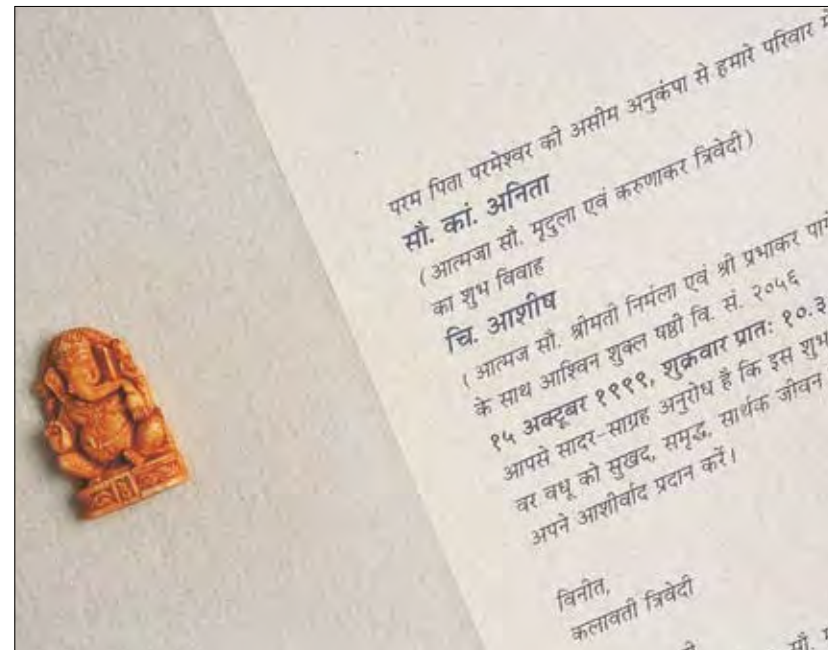 परम पिता परमेश्वर की असीम अनुकंपा से हमारे परिवार में
सौ. कां. अनिता
(आत्मजा सौ. मृदुला एवं करुणाकर त्रिवेदी)
का शुभ विवाह
चि. आशीष
(आत्मज सौ. श्रीमती निर्मला एवं श्री प्रभाकर
के साथ आश्विन शुक्ल षष्ठी वि. सं. २०५६
१५ अक्टूबर १९९९, शुक्रवार प्रातः १०.३
आपसे सादर-साग्रह अनुरोध है कि इस शुभ
वर वधू को सुखद, समृद्ध, सार्थक जीवन
अपने आशीर्वाद प्रदान करें।
विनीत,
कलावती त्रिवेदी